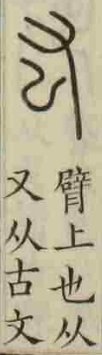 厷
臂上也从
又从古文